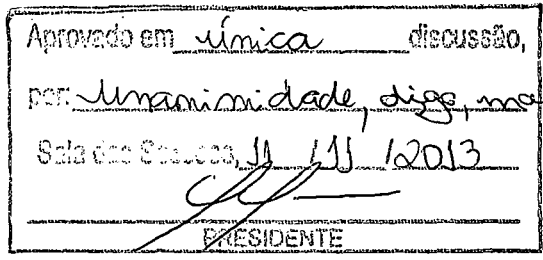 Aprovado em única discussão,
por: Unanimidade, digo, ma
Sala das Sessões, 11 / 11 / 2013
PRESIDENTE